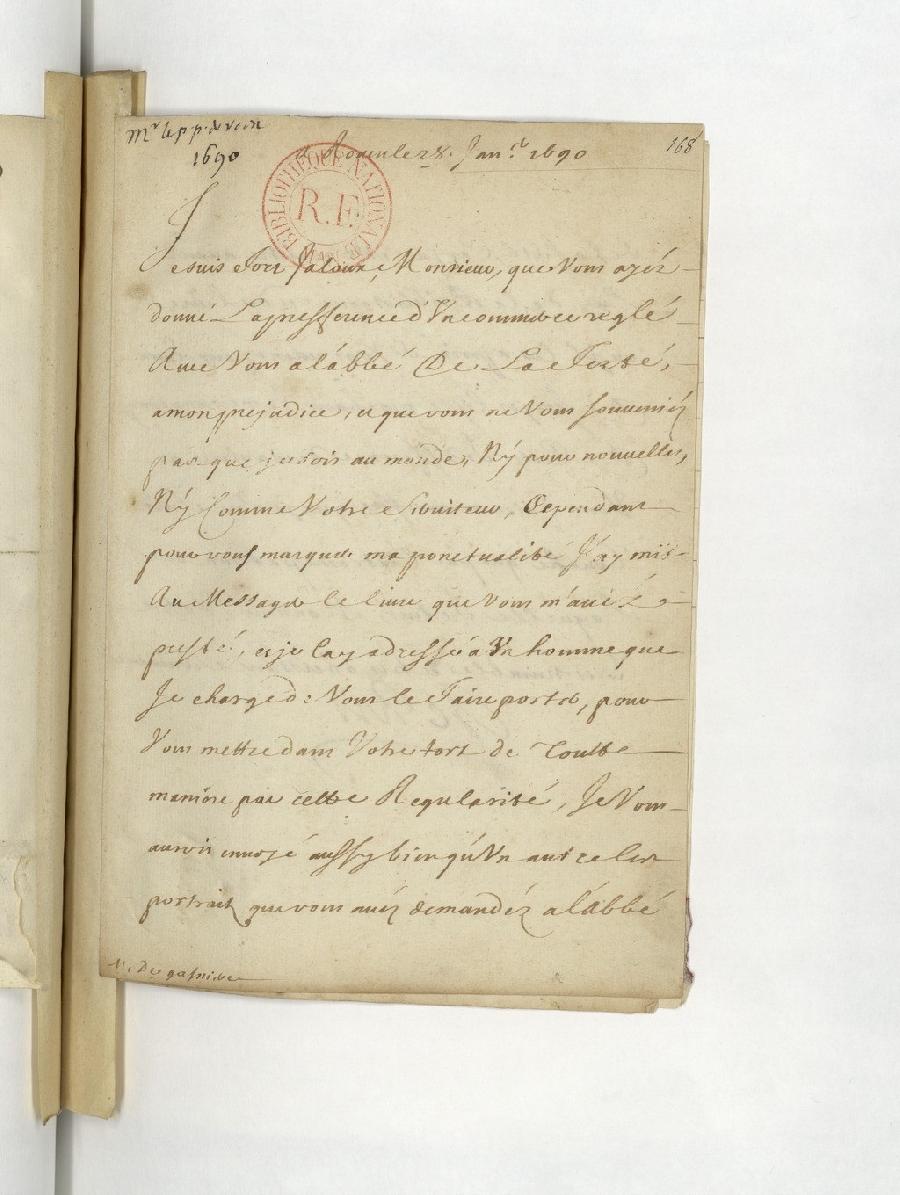 Mr le p. p.
1690
168
a Rouen le 28. Janr. 1690
BIBLIOTHEQUE NATIONALE
R.F.
MAN.
Je suis Fort Jaloux, Monsieur, que Vous ayéz
donné La presference d'Un commerce reglé
Avec Vous a l'abbé De La Ferté,
a mon prejudice, et que vous ne Vous souveniéz
pas que je sois au monde, Ny pour nouvelles,
Ny Comme Votre serviteur, Cependant
pour vous marquer ma ponctualité J'ay mis
Au Messager le livre que Vous m'aviéz
presté, et je l'ay adressé a Un homme que
Je charge de Vous le Faire porter, pour
Vous mettre dans Votre tort de Toutte
maniere par cette Regularité, Je Vous
aurois envoyé aussy bien qu'Un autre les
portraits que vous avéz demandéz a l'abbé
M. De gasnieres